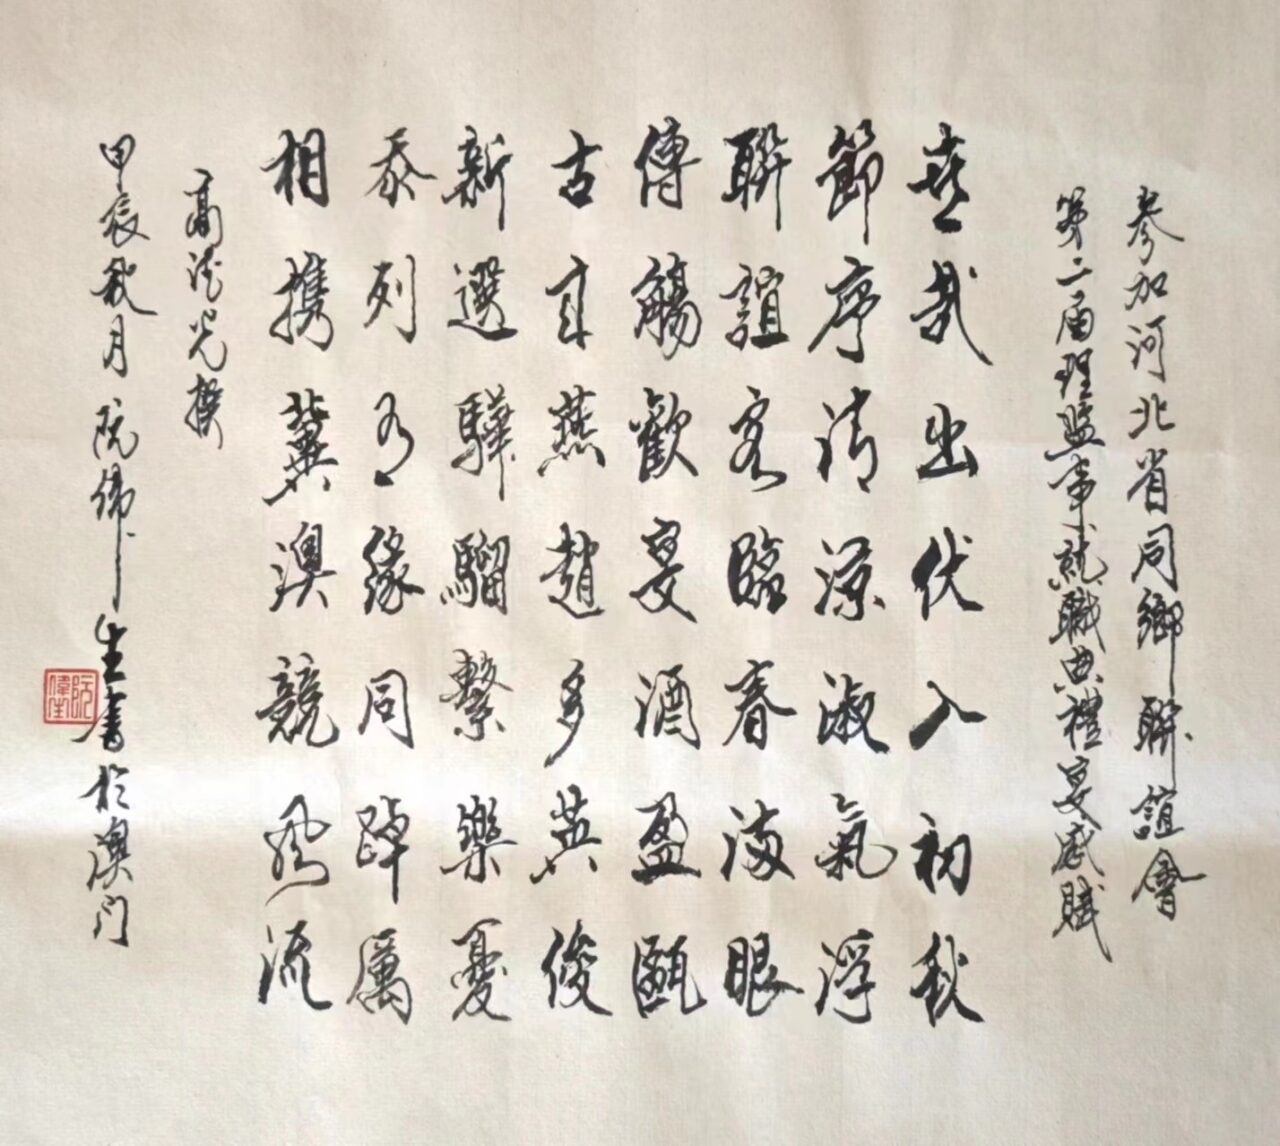 參加河北省同鄉聯誼會
第二届理監事就職典禮宴感賦
喜哉出伏入初秋
節序清涼淑氣浮
聯誼客臨春滿眼
傳觴歡宴酒盈甌
古自燕趙多英俊
新選驊騮繫樂憂
忝列有緣同踔厲
相携冀澳競風流
高光撰
甲辰秋月阮偉生書於澳门
阮偉生